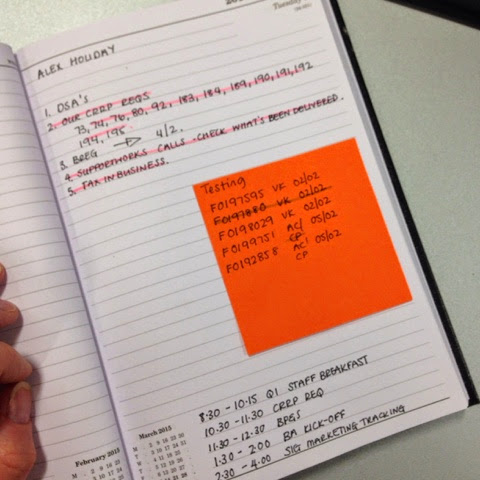 Tuesday
ALEX HOLIDAY
1. DSA'S
2. OUR CRRP REQS
73, 74, 76, 80, 92, 183, 184, 189, 190, 191, 192
194, 195
3. BREG → 4/2.
4. SUPPORTWORKS CALLS. CHECK WHAT'S BEEN DELIVERED.
5. TAX IN BUSINESS.
Testing
F0197595 VK 02/02
F0197880 VK 02/02
F0198029 VK 02/02
F0199751 AC/ 05/02
CP
F0192858 AC/ 05/02
CP
8:30 - 10:15 Q1 STAFF BREAKFAST
10:30 - 11:30 CRRP REQ
11:30 - 12:30 BREG
1:30 - 2:00 BA KICK-OFF
2:30 - 4:00 SIG MARKETING TRACKING
February 2015
March 2015